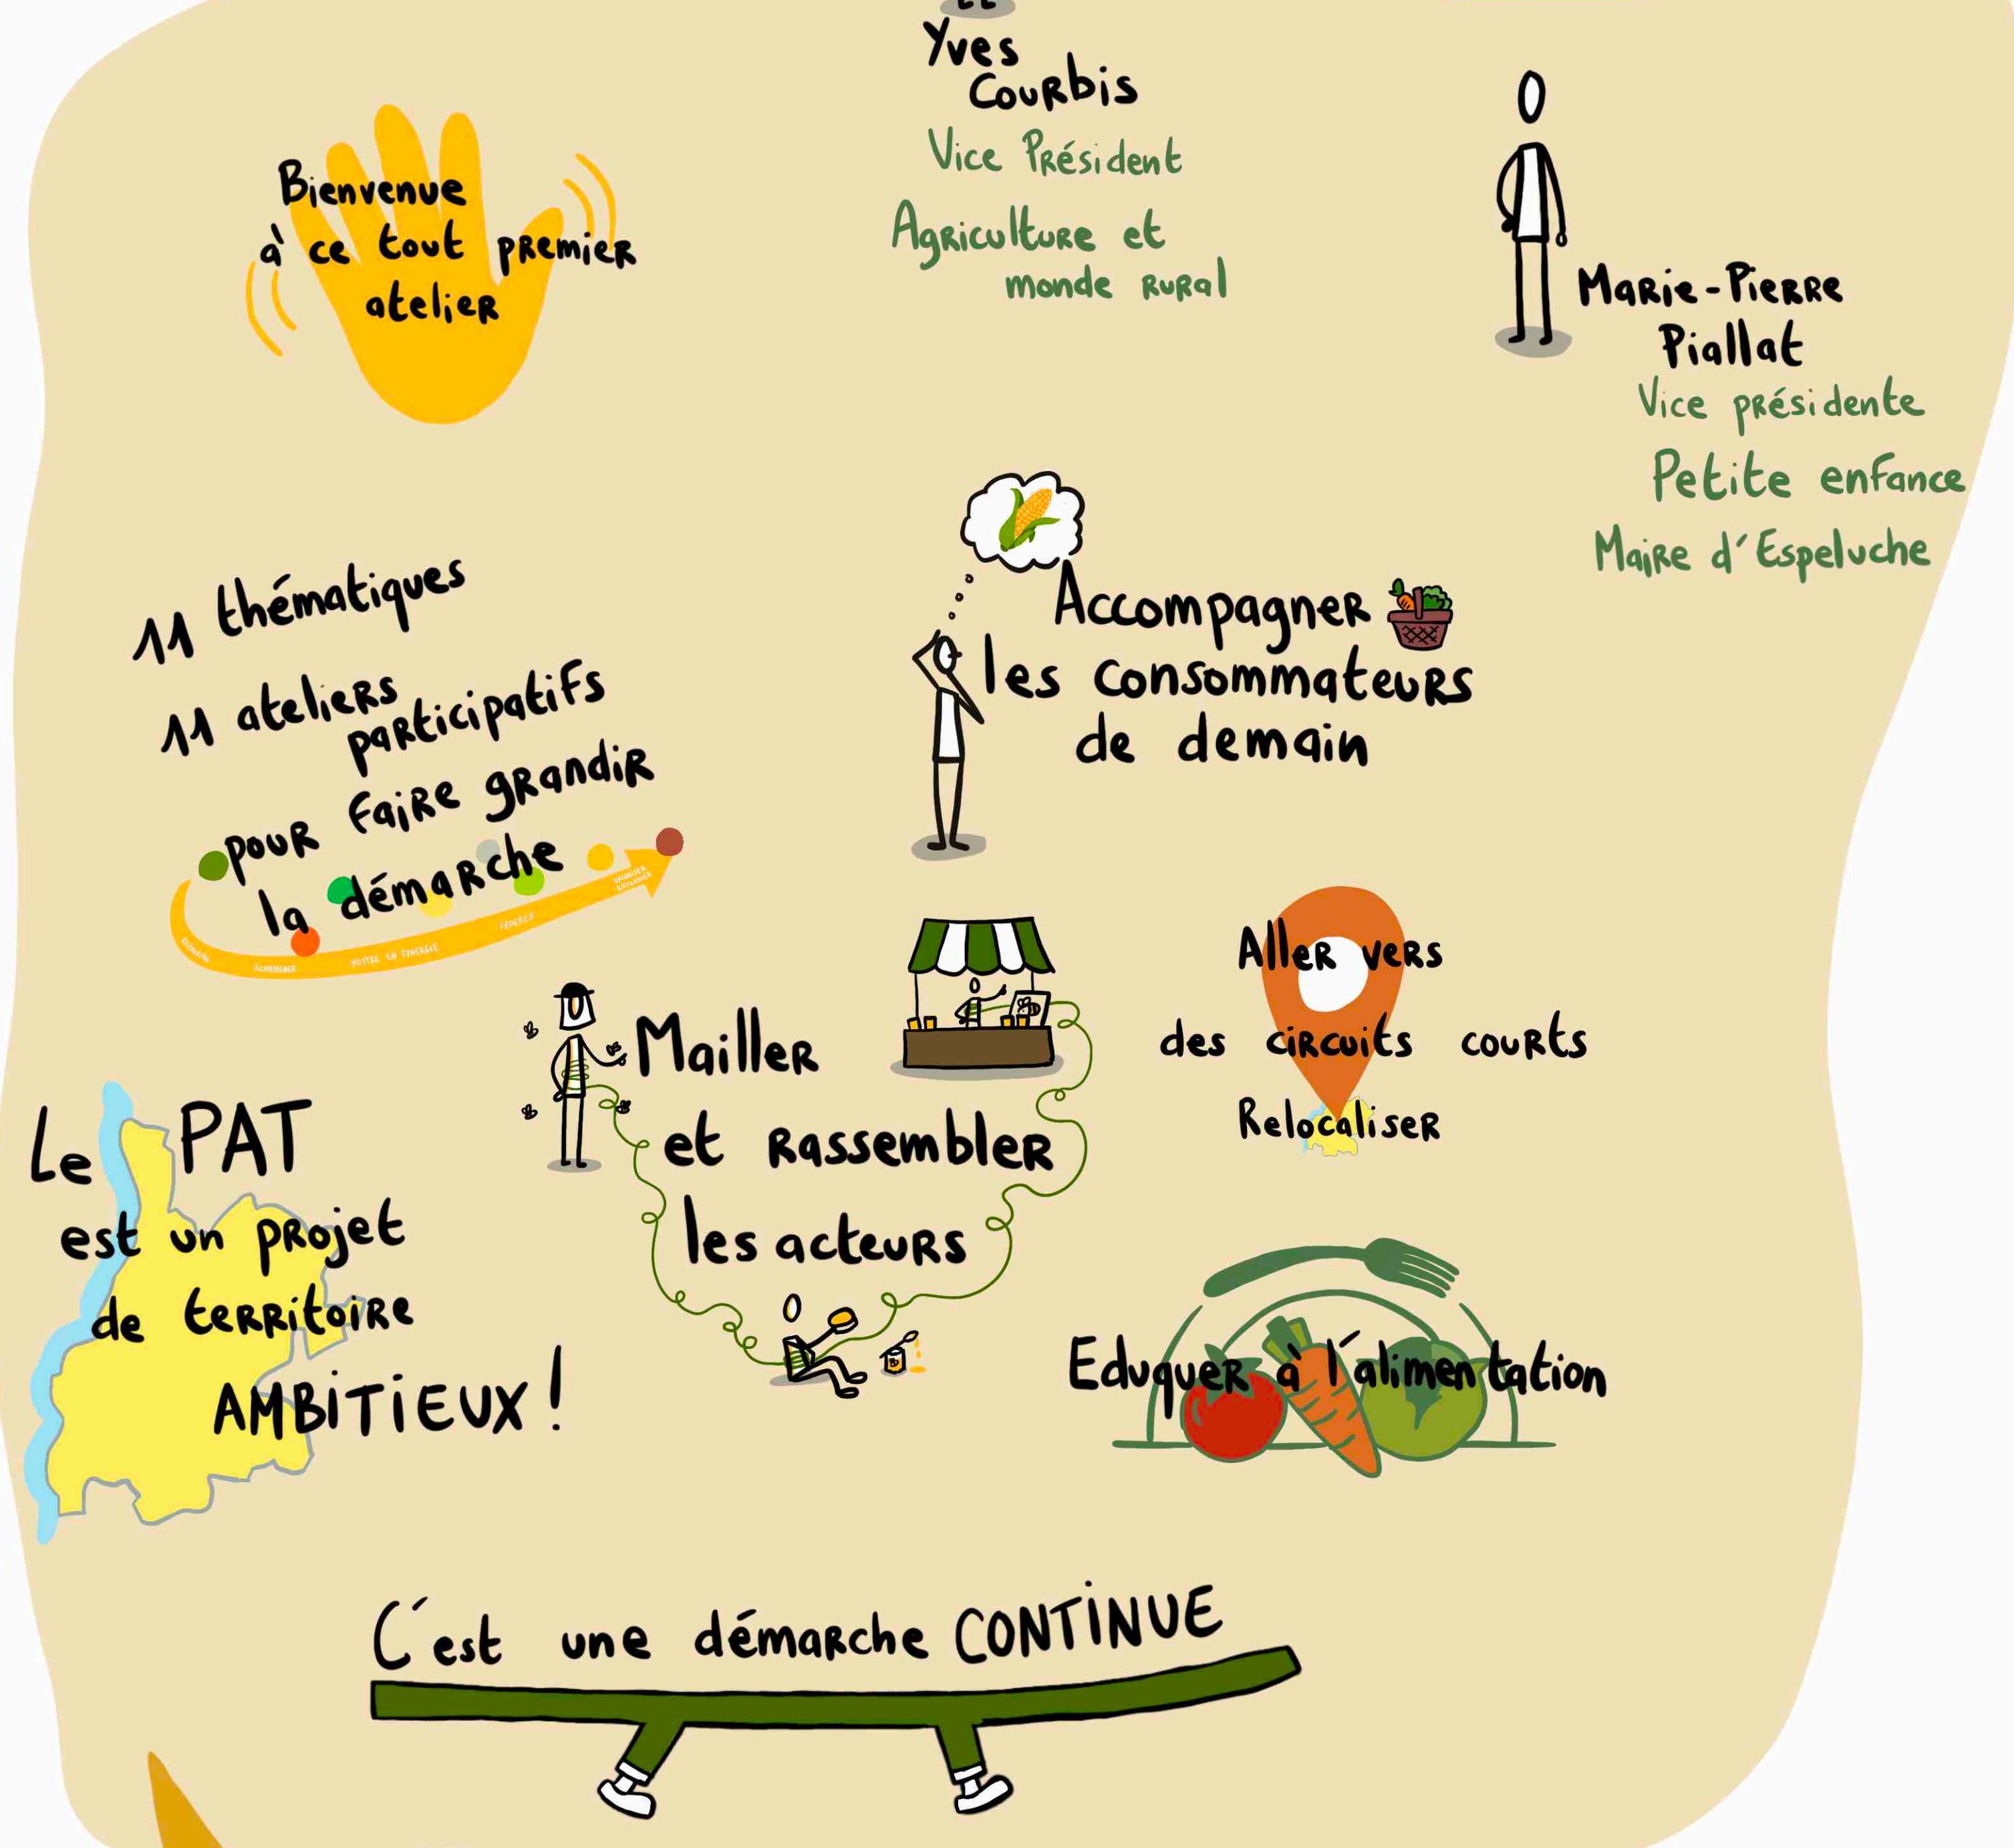 Yves
Courbis
Vice Président
Agriculture et
monde rural
Bienvenue
à ce tout premier
atelier
Marie-Pierre
Piallat
Vice présidente
Petite enfance
Maire d'Espeluche
11 thématiques
11 ateliers
participatifs
pour faire grandir
la démarche
METTRE EN SYNERGIE
FÉDÉRER
Accompagner
les consommateurs
de demain
Mailler
et rassembler
les acteurs
Aller vers
des circuits courts
Relocaliser
Le PAT
est un projet
de territoire
AMBITIEUX !
Eduquer à l'alimentation
C'est une démarche CONTINUE